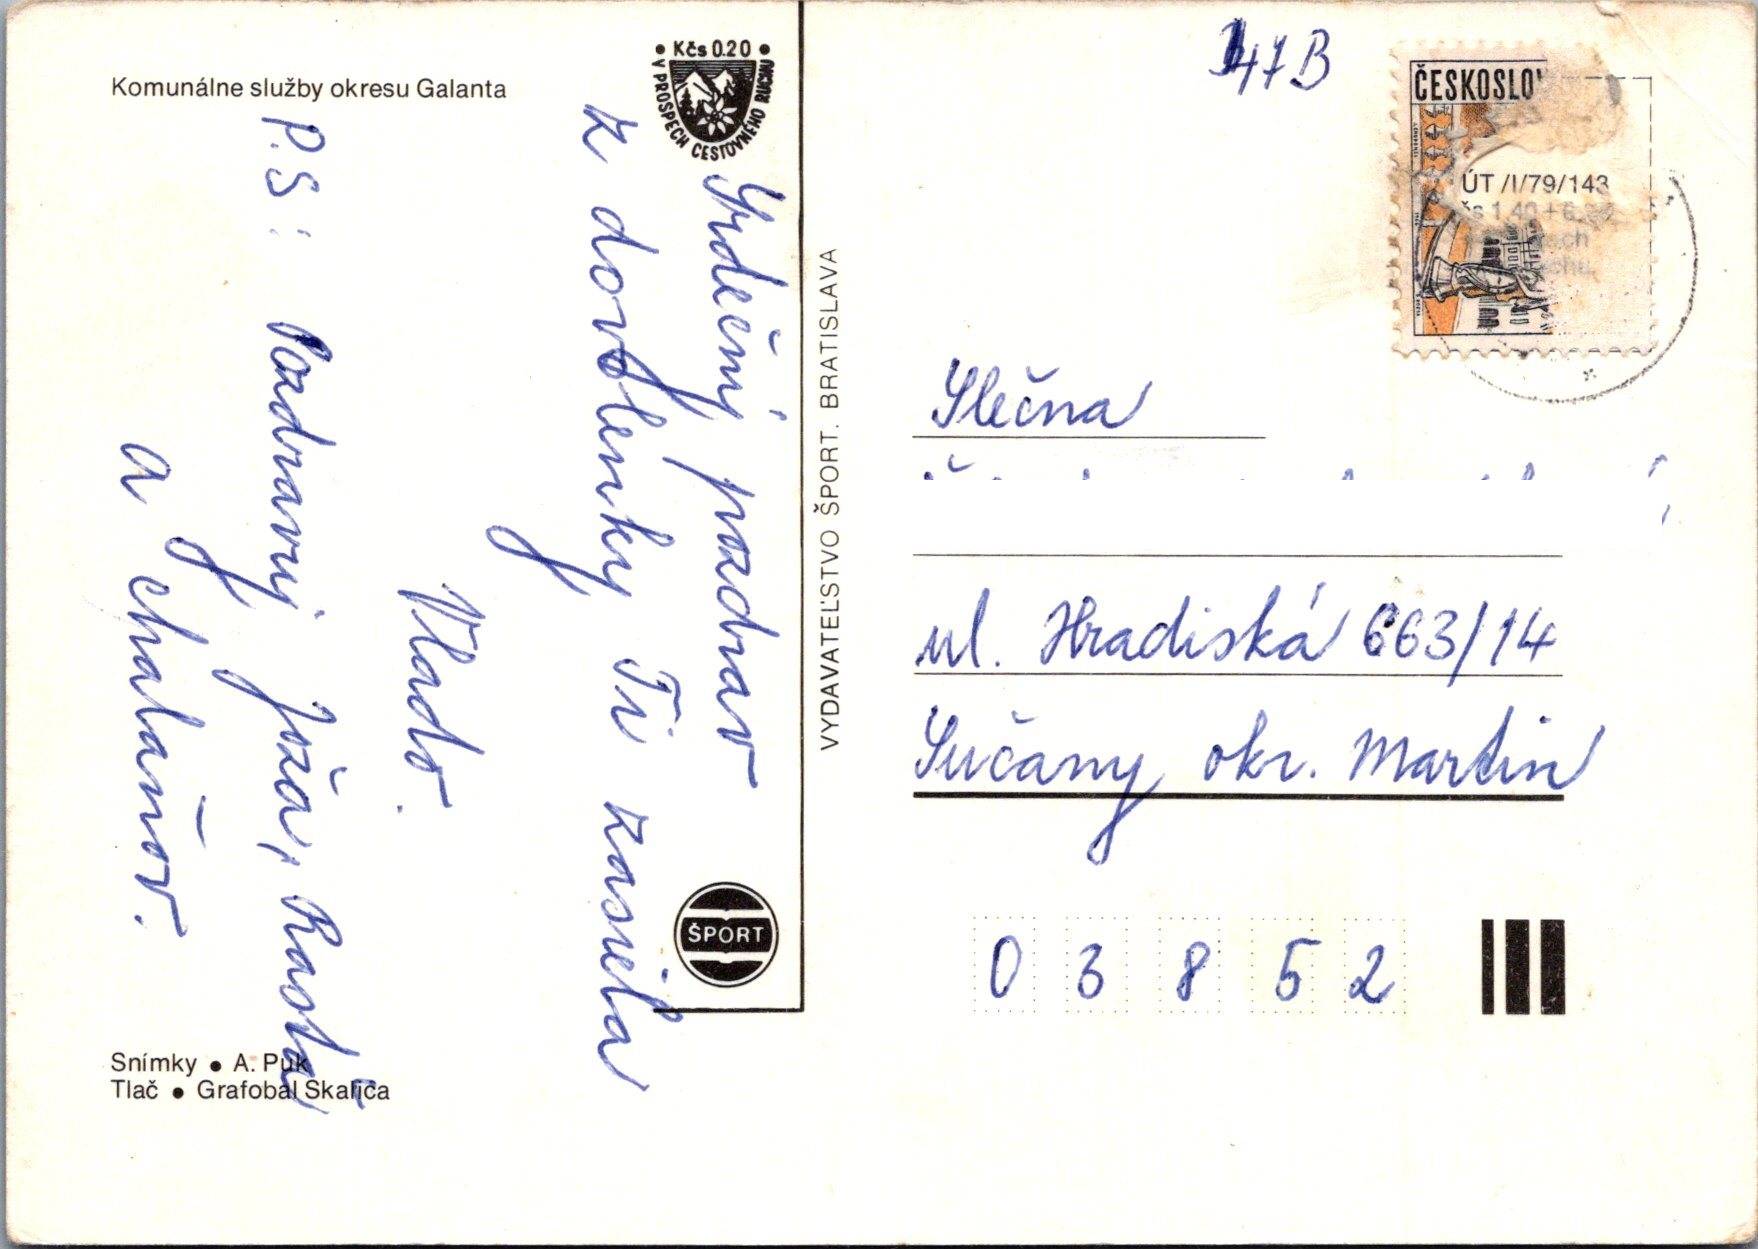 Komunálne služby okresu Galanta
• Kčs 0.20 •
V PROSPECH CESTOVNÉHO RUCHU
Srdečný pozdrav
z dovolenky Ti zasiela
Vlado.
P.S: Pozdravuj Joža, Rasťa
a chalaňov.
Snímky • A. Puk
Tlač • Grafobal Skalica
VYDAVATEĽSTVO ŠPORT. BRATISLAVA
ŠPORT
47B
ČESKOSLO
ÚT /I/79/143
Slečna
ul. Hradiská 663/14
Sučany okr. Martin
03852